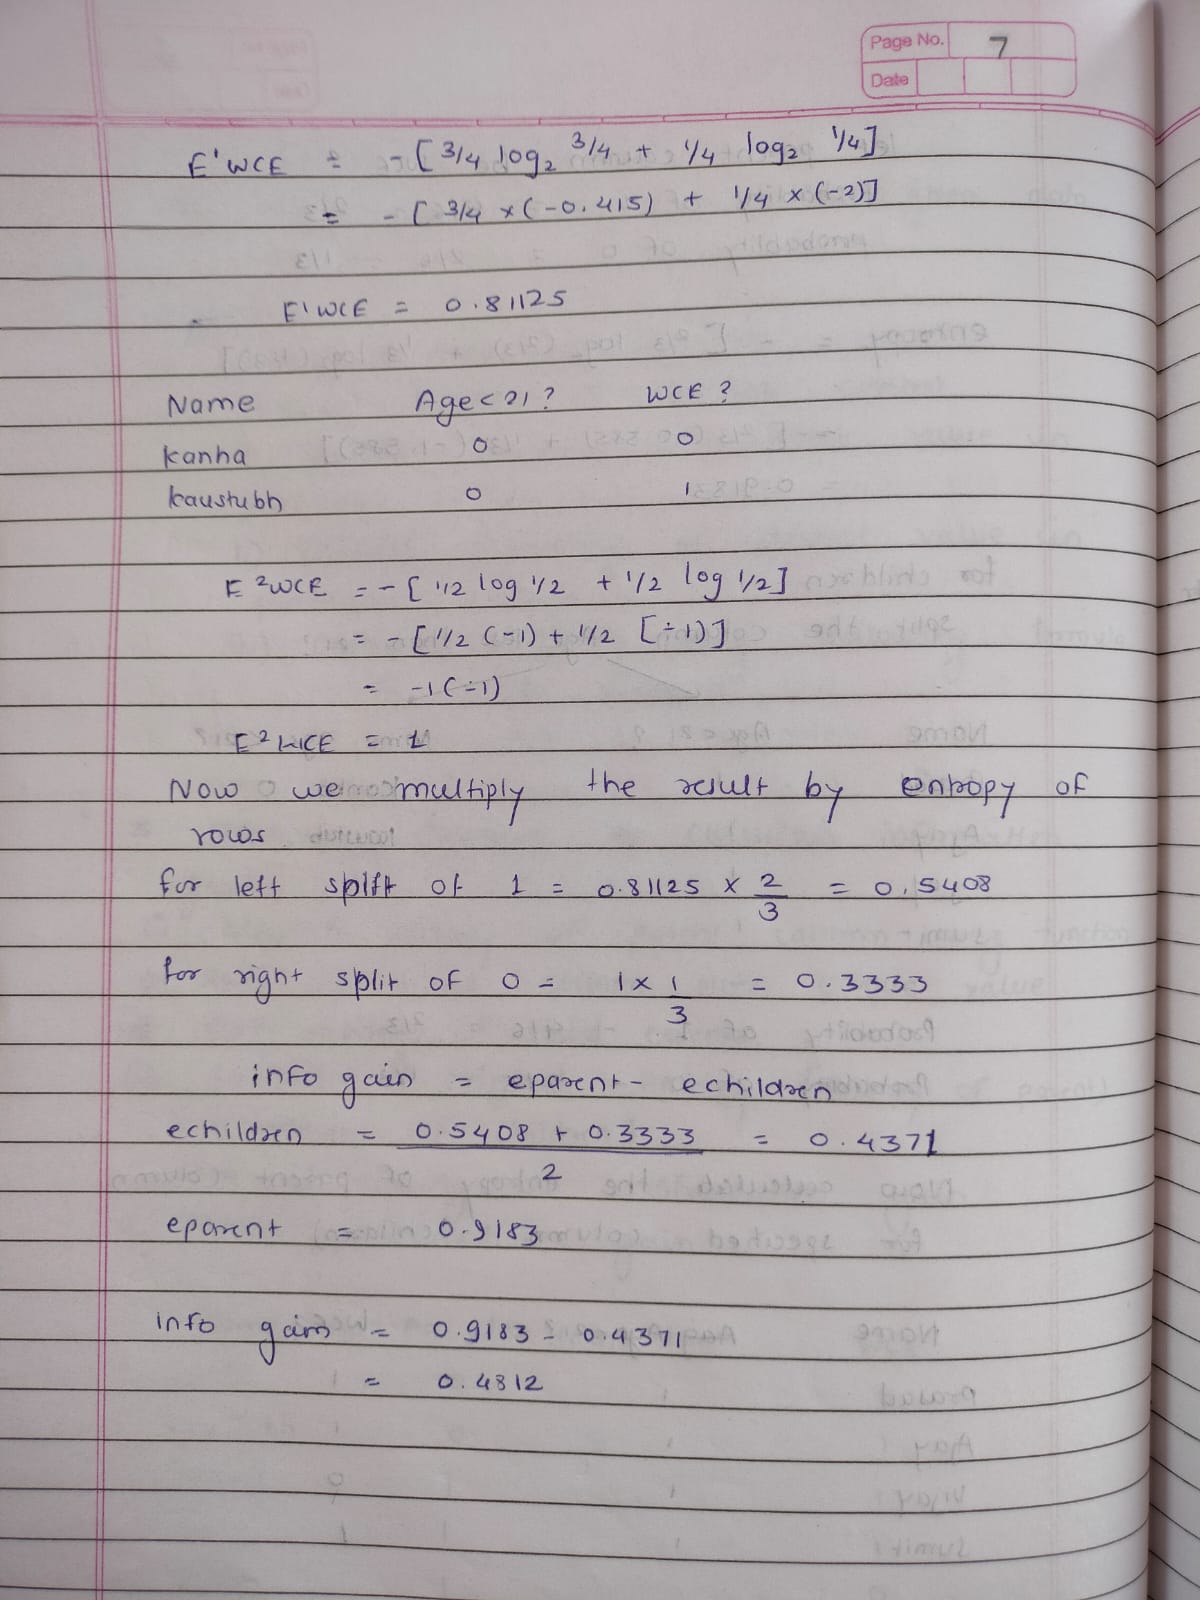 Page No. 7
Date
E'WCE = -[ 3/4 log₂ 3/4 + 1/4 log₂ 1/4]
= -[ 3/4 x(-0.415) + 1/4 x (-2)]
E'WCE = 0.81125
Name Age<21? WCE?
Kanha 0 0
Kaustubh 0 1
E²WCE = -[ 1/2 log 1/2 + 1/2 log 1/2]
= -[1/2 (-1) + 1/2 [-1)]
= -1(-1)
E²WCE = 1
Now we multiply the result by entropy of
rows
for left split of 1 = 0.81125 x 2/3 = 0.5408
for right split of 0 = 1 x 1/3 = 0.3333
info gain = eparent - echildren
echildren = 0.5408 + 0.3333 / 2 = 0.4371
eparent = 0.9183
Info gain = 0.9183 - 0.4371
= 0.4812